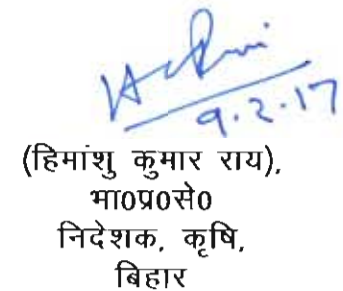 9.2.17
(हिमांशु कुमार राय),
भा0प्र0से0
निदेशक, कृषि,
बिहार